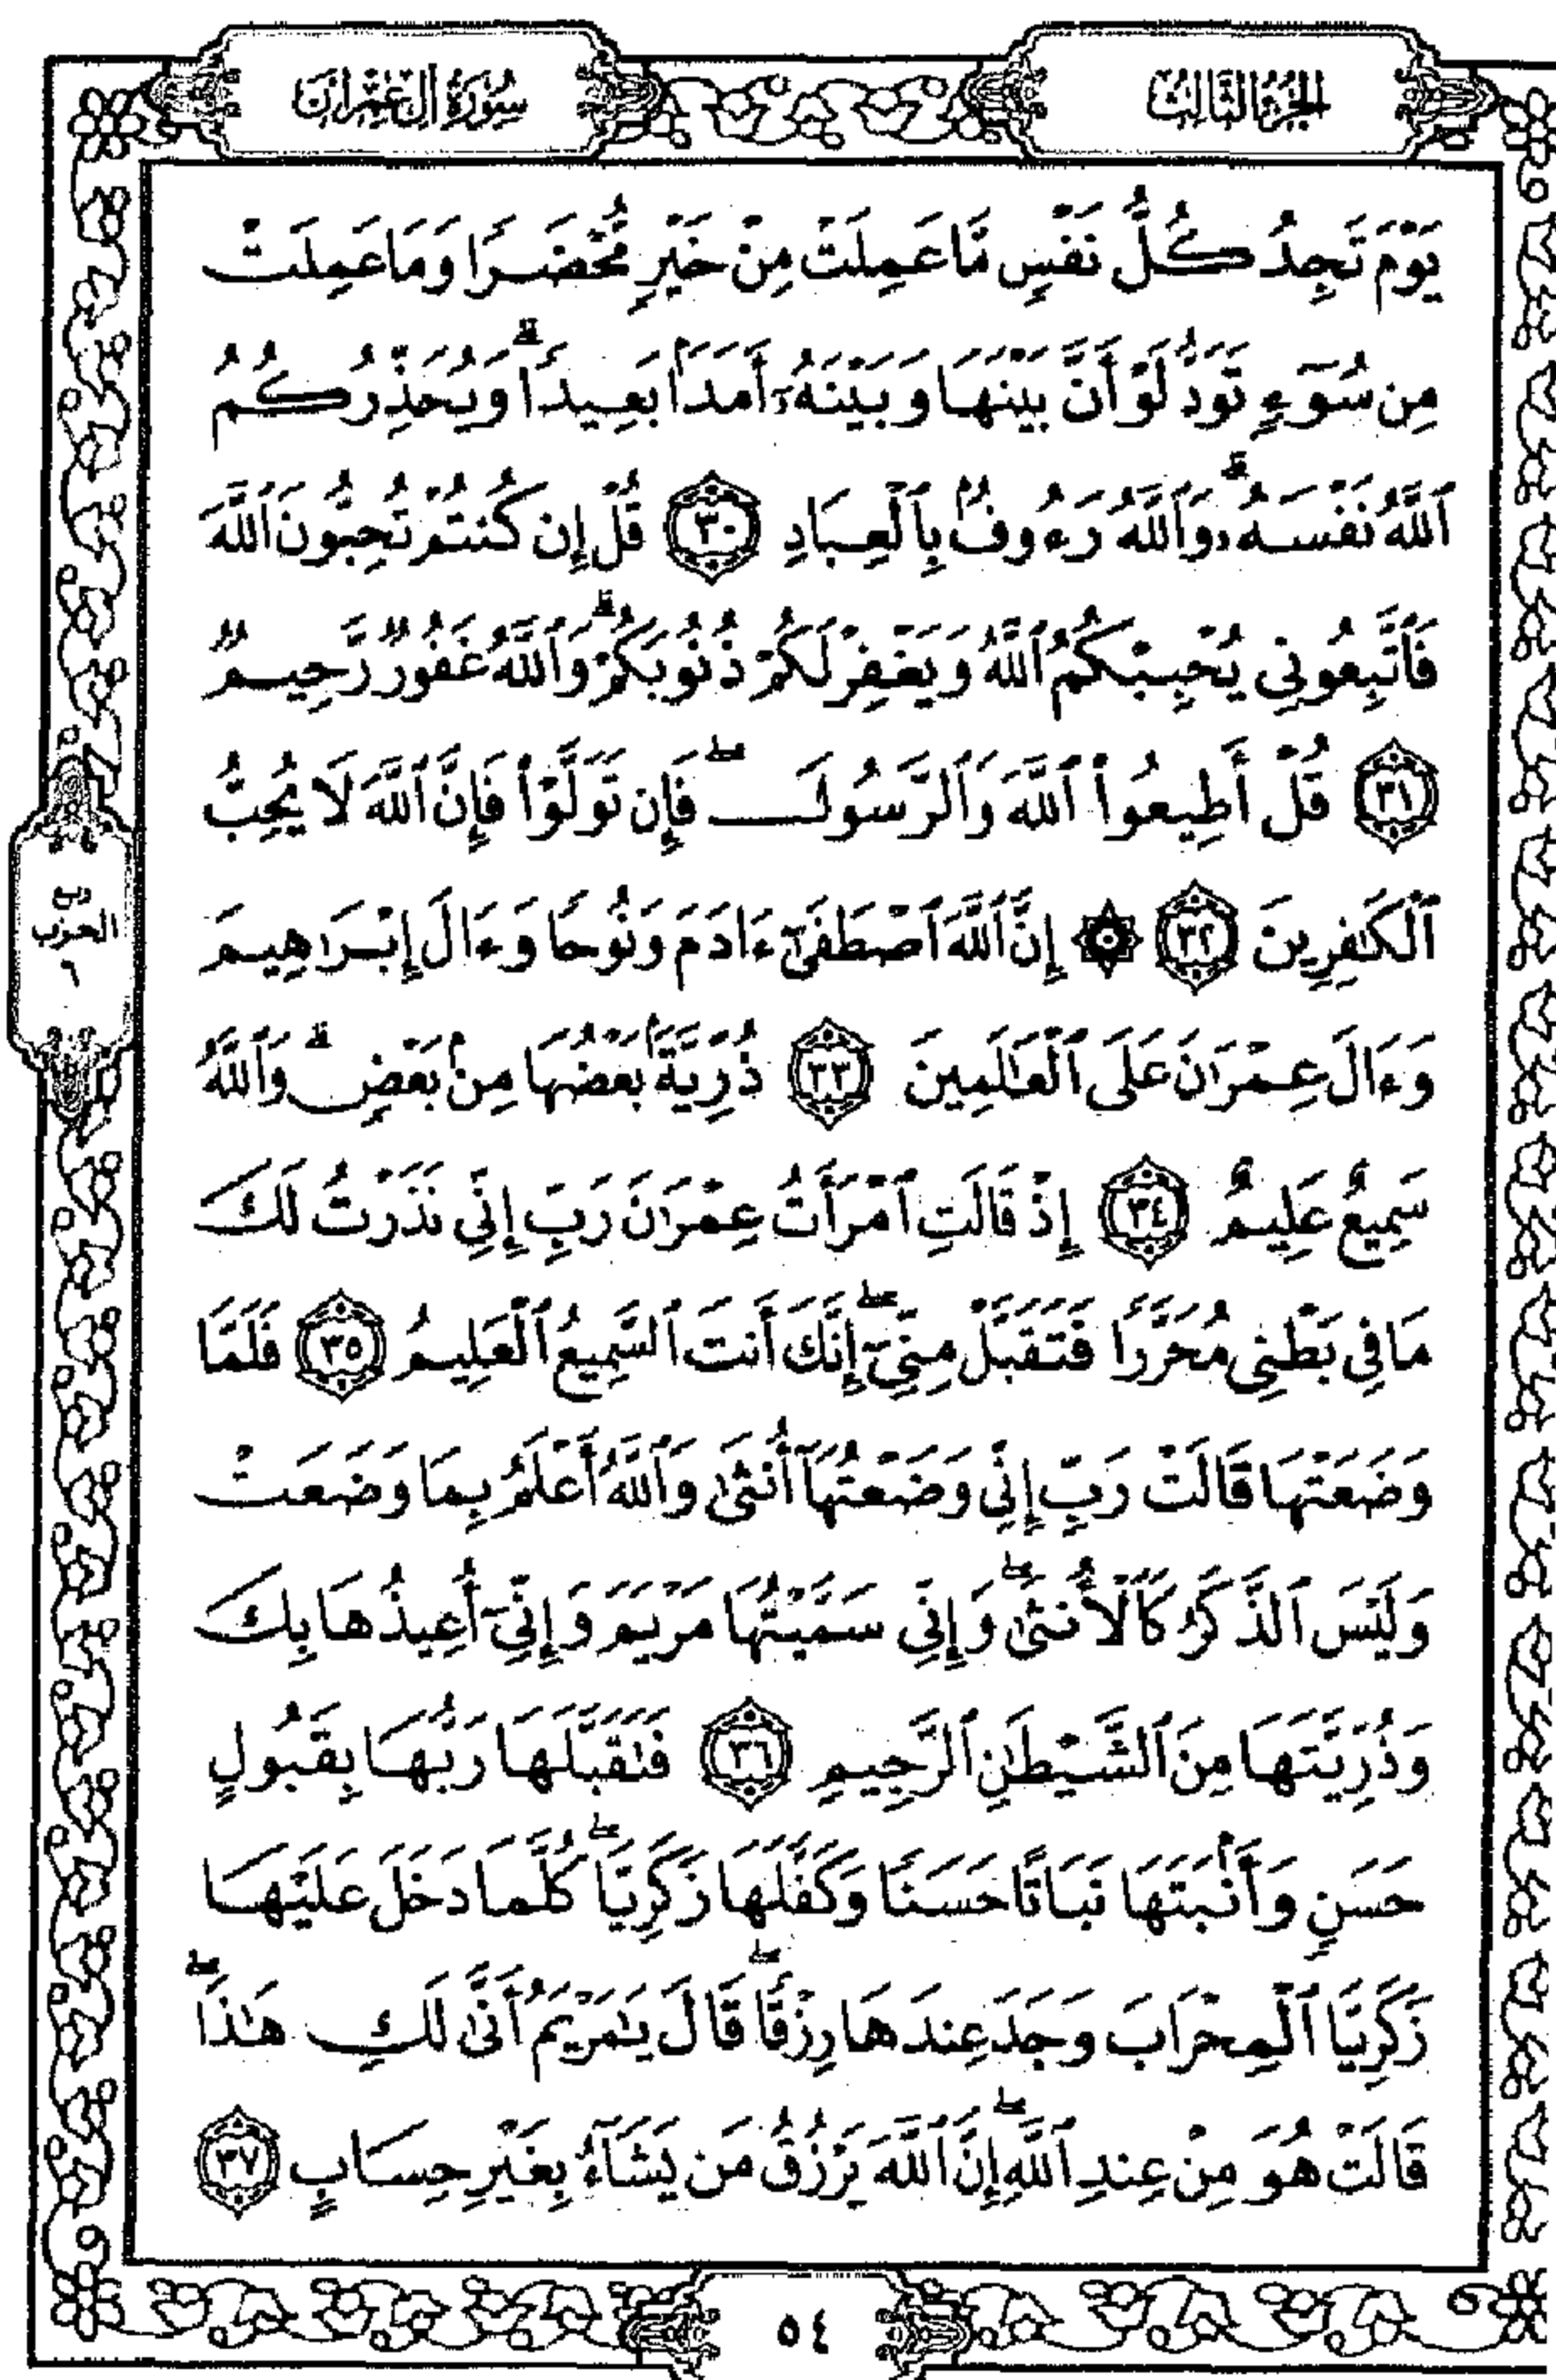 الجزء الثالث
سورة آل عمران
يَوْمَ تَجِدُ كُلُّ نَفْسٍ مَّا عَمِلَتْ مِنْ خَيْرٍ مُّحْضَرًا وَمَا عَمِلَتْ
مِن سُوٓءٍ تَوَدُّ لَوْ أَنَّ بَيْنَهَا وَبَيْنَهُۥٓ أَمَدًۢا بَعِيدًا ۗ وَيُحَذِّرُكُمُ
ٱللَّهُ نَفْسَهُۥ ۗ وَٱللَّهُ رَءُوفُۢ بِٱلْعِبَادِ ٣٠ قُلْ إِن كُنتُمْ تُحِبُّونَ ٱللَّهَ
فَٱتَّبِعُونِي يُحْبِبْكُمُ ٱللَّهُ وَيَغْفِرْ لَكُمْ ذُنُوبَكُمْ ۗ وَٱللَّهُ غَفُورٌ رَّحِيمٌ
٣١ قُلْ أَطِيعُوا۟ ٱللَّهَ وَٱلرَّسُولَ ۖ فَإِن تَوَلَّوْا۟ فَإِنَّ ٱللَّهَ لَا يُحِبُّ
ٱلْكَٰفِرِينَ ٣٢ ۞ إِنَّ ٱللَّهَ ٱصْطَفَىٰٓ ءَادَمَ وَنُوحًا وَءَالَ إِبْرَٰهِيمَ
وَءَالَ عِمْرَٰنَ عَلَى ٱلْعَٰلَمِينَ ٣٣ ذُرِّيَّةًۢ بَعْضُهَا مِنۢ بَعْضٍ ۗ وَٱللَّهُ
سَمِيعٌ عَلِيمٌ ٣٤ إِذْ قَالَتِ ٱمْرَأَتُ عِمْرَٰنَ رَبِّ إِنِّي نَذَرْتُ لَكَ
مَا فِي بَطْنِي مُحَرَّرًا فَتَقَبَّلْ مِنِّيٓ ۖ إِنَّكَ أَنتَ ٱلسَّمِيعُ ٱلْعَلِيمُ ٣٥ فَلَمَّا
وَضَعَتْهَا قَالَتْ رَبِّ إِنِّي وَضَعْتُهَآ أُنثَىٰ وَٱللَّهُ أَعْلَمُ بِمَا وَضَعَتْ
وَلَيْسَ ٱلذَّكَرُ كَٱلْأُنثَىٰ ۖ وَإِنِّي سَمَّيْتُهَا مَرْيَمَ وَإِنِّيٓ أُعِيذُهَا بِكَ
وَذُرِّيَّتَهَا مِنَ ٱلشَّيْطَٰنِ ٱلرَّجِيمِ ٣٦ فَتَقَبَّلَهَا رَبُّهَا بِقَبُولٍ
حَسَنٍ وَأَنۢبَتَهَا نَبَاتًا حَسَنًا وَكَفَّلَهَا زَكَرِيَّا ۖ كُلَّمَا دَخَلَ عَلَيْهَا
زَكَرِيَّا ٱلْمِحْرَابَ وَجَدَ عِندَهَا رِزْقًا ۖ قَالَ يَٰمَرْيَمُ أَنَّىٰ لَكِ هَٰذَا ۖ
قَالَتْ هُوَ مِنْ عِندِ ٱللَّهِ ۖ إِنَّ ٱللَّهَ يَرْزُقُ مَن يَشَآءُ بِغَيْرِ حِسَابٍ ٣٧
ربع
الحزب
٦
٥٤